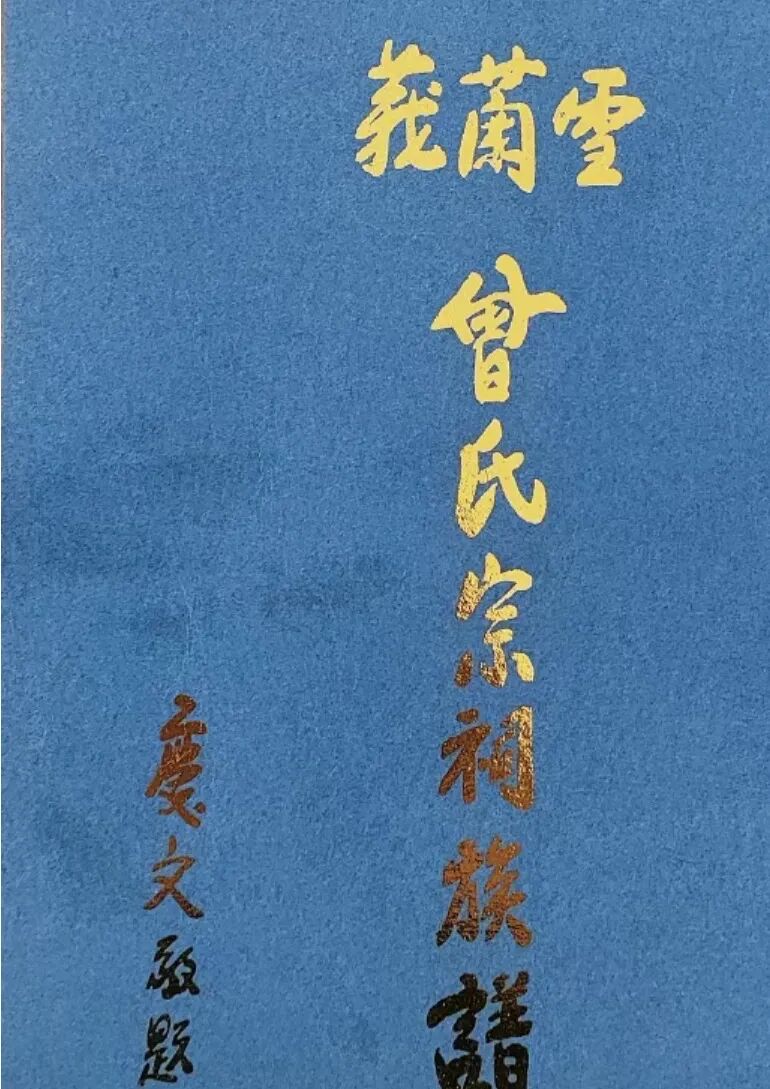 雪蘭莪
曾氏宗祠族譜
慶文敬題